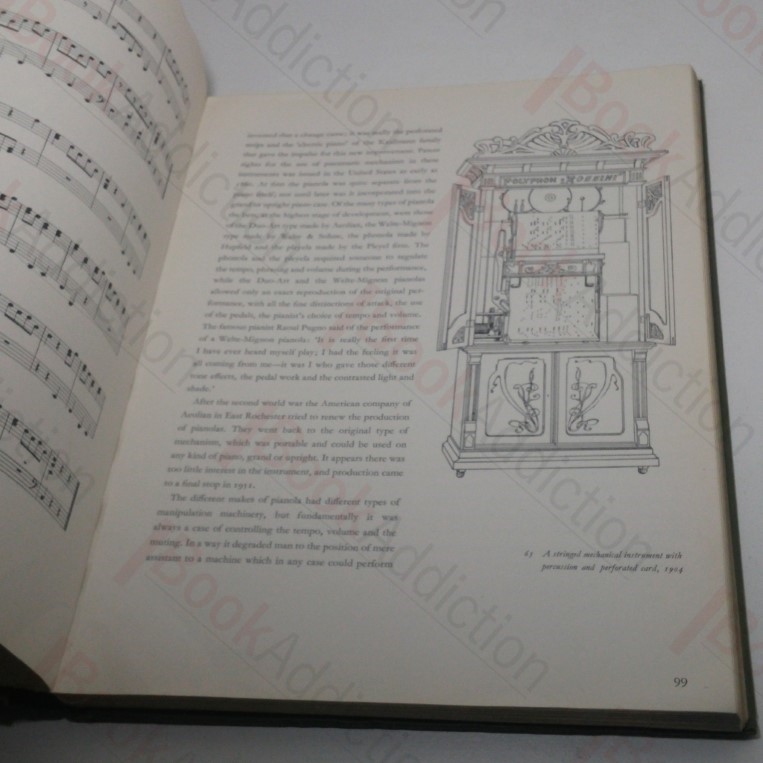 invented that a change came; it was really the perforated
strips and the 'electric piano' of the Kaufmann family
that gave the impetus for this new improvement. Patent
rights for the use of pneumatic mechanism in these
instruments was issued in the United States as early as
At first the pianola was quite separate from the
piano itself, and used later was it incorporated into the
grand or upright piano case. Of the many types of pianola
the best, at the highest stage of development, were those
of the Duo-Art type made by Aeolian, the Welte-Mignon
type made by Welte & Sohne, the phonola made by
Hupfeld and the pleyela made by the Pleyel firm. The
phonola and the pleyela required someone to regulate
the tempo, phrasing and volume during the performance,
while the Duo-Art and the Welte-Mignon pianolas
allowed only an exact reproduction of the original per-
formance, with all the fine distinctions of attack, the use
of the pedals, the pianist's choice of tempo and volume.
The famous pianist Raoul Pugno said of the performance
of a Welte-Mignon pianola: 'It is really the first time
I have ever heard myself play; I had the feeling it was
all coming from me—it was I who gave those different
tone effects, the pedal work and the contrasted light and
shade.'
After the second world war the American company of
Aeolian in East Rochester tried to renew the production
of pianolas. They went back to the original type of
mechanism, which was portable and could be used on
any kind of piano, grand or upright. It appears there was
too little interest in the instrument, and production came
to a final stop in 1951.
The different makes of pianola had different types of
manipulation machinery, but fundamentally it was
always a case of controlling the tempo, volume and the
nuancing. In a way it degraded man to the position of mere
assistant to a machine which in any case could perform
POLYPHON ROSSINI
65 A stringed mechanical instrument with
percussion and perforated card, 1904
99
BookAddiction